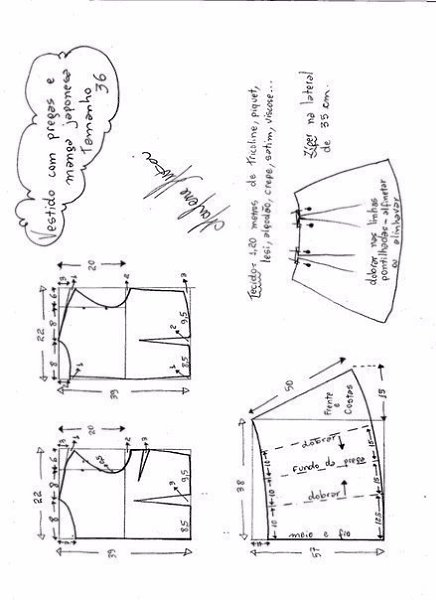 Vestido com pregas e
manga japonesa
Tamanho
36
Tecido: 1,20 metros de tricoline, piquet,
lesi, algodão, crepe, satim, viscose...
Zíper na lateral
de 35 cm.
dobrar nas linhas
pontilhadas - alfinetar
ou alinhavar
22
8
8
6
3
20
2
39
9,5
2
8,5
1
1
22
8
8
6
3
20
2
3
0,5
39
9,5
3
8,5
50
15
38
57
Frente
e
Costas
dobrar
Fundo da prega
dobrar
meio e fio
10
10
10
15
15
12,5